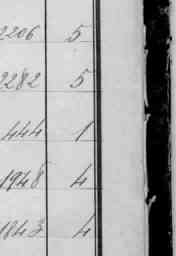 2206 5
2282 5
444 1
1948 4
1843 4